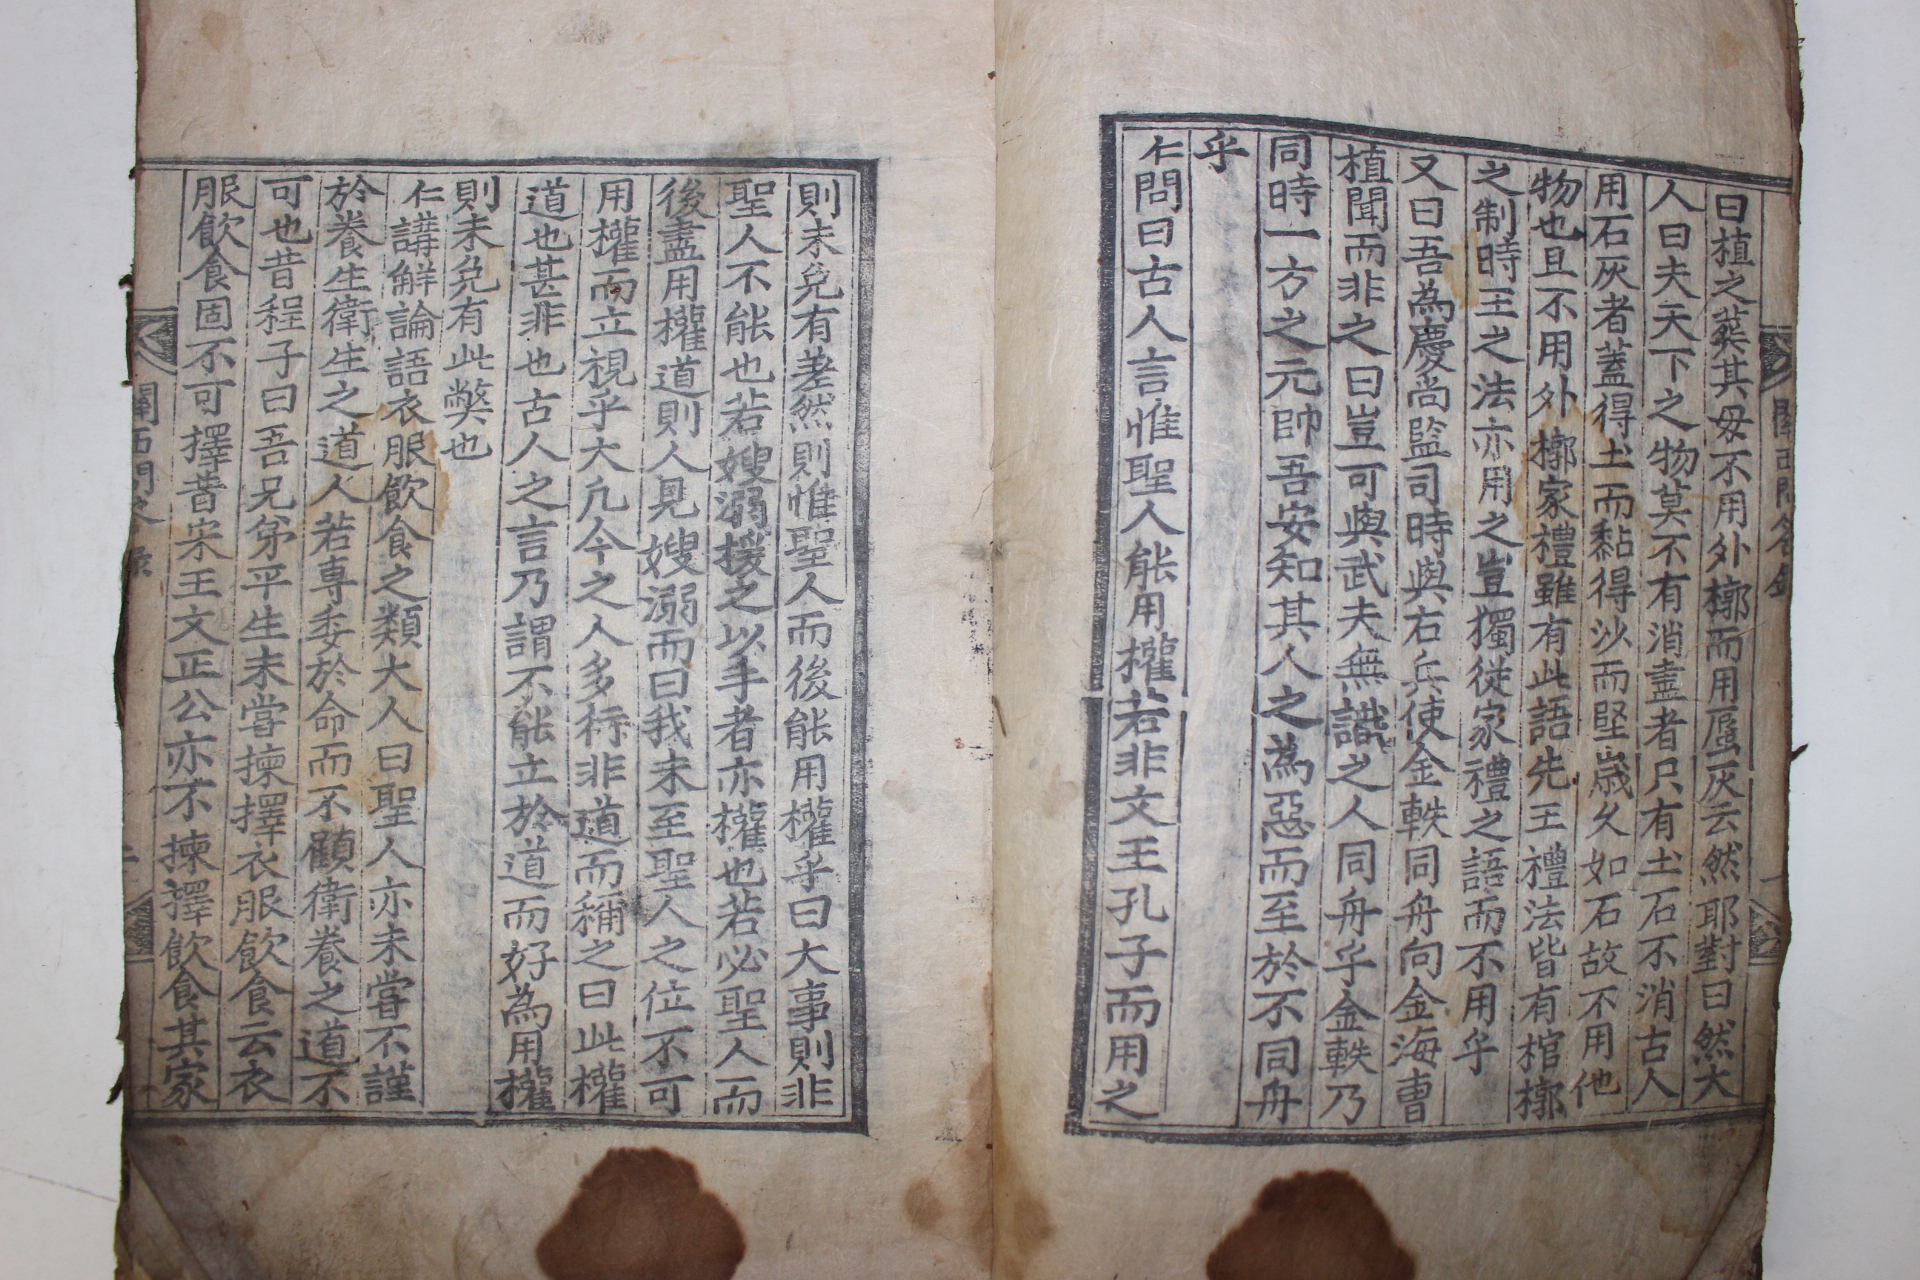 曰植之葬其母不用外槨而用蜃灰云然耶對曰然大
人曰夫天下之物莫不有消盡者只有土石不消古人
用石灰者蓋得土而黏得沙而堅歲久如石故不用他
物也且不用外槨家禮雖有此語先王禮法皆有棺槨
之制時王之法亦用之豈獨從家禮之語而不用乎
又曰吾為慶尚監司時與右兵使金軼同舟向金海曹
植聞而非之曰豈可與武夫無識之人同舟乎金軼乃
同時一方之元帥吾安知其人之為惡而至於不同舟
乎
仁問曰古人言惟聖人能用權若非文王孔子而用之
關西問答錄
則未免有差然則惟聖人而後能用權乎曰大事則非
聖人不能也若嫂溺援之以手者亦權也若必聖人而
後盡用權道則人見嫂溺而曰我未至聖人之位不可
用權而立視乎大凡今之人多行非道而稱之曰此權
道也甚非也古人之言乃謂不能立於道而好為用權
則未免有此獘也
仁講解論語衣服飲食之類大人曰聖人亦未嘗不謹
於養生衛生之道人若專委於命而不顧衛養之道不
可也昔程子曰吾兄弟平生未嘗揀擇衣服飲食云衣
服飲食固不可擇昔宋王文正公亦不揀擇飲食其家
關西問答錄
二